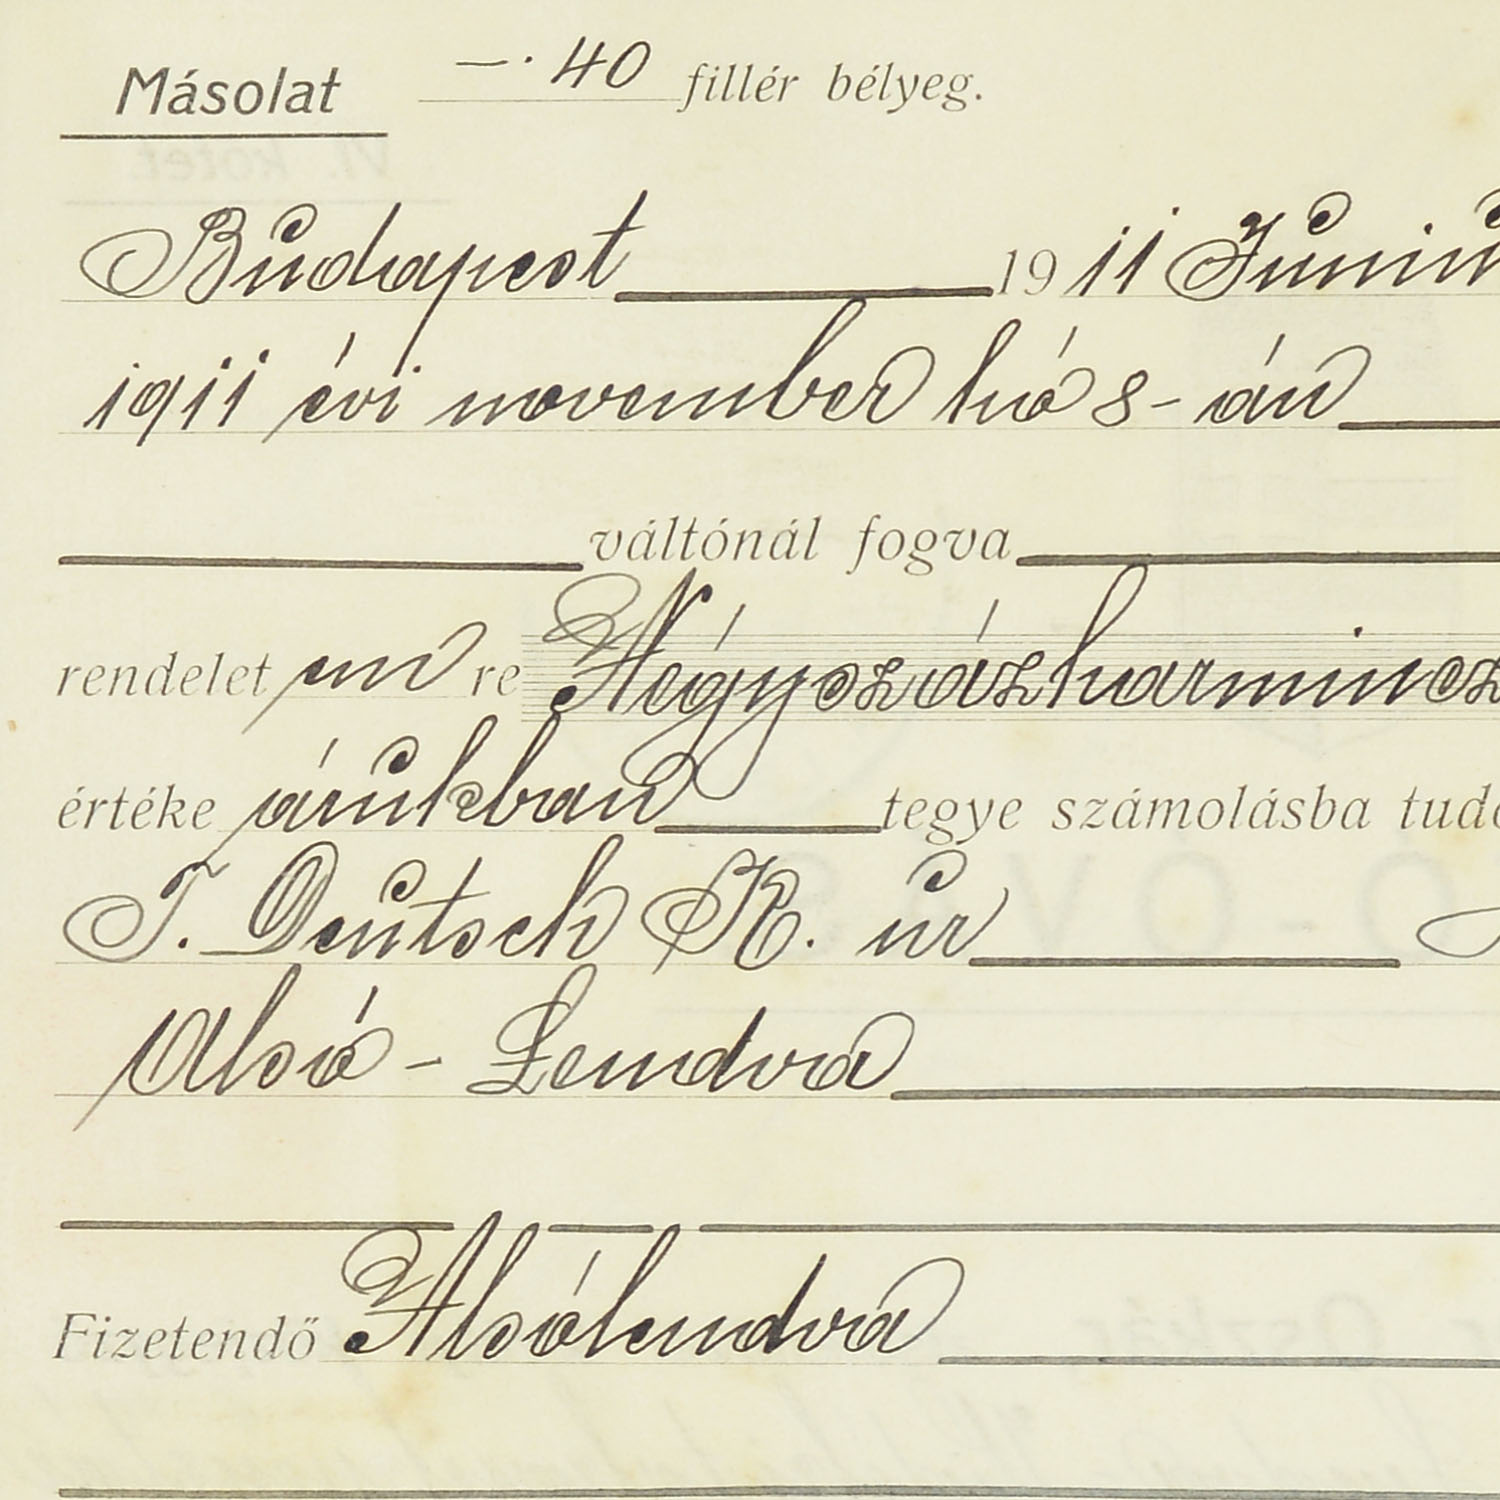 Másolat —·40 fillér bélyeg.
Budapest 1911 Juniu
1911 évi november hó 8-án
váltónál fogva
rendelet em re Négyszázharmincz
értéke árukban tegye számolásba tudó
T. Deutsch R. ur
Alsó-Lendva
Fizetendő Alsólendva